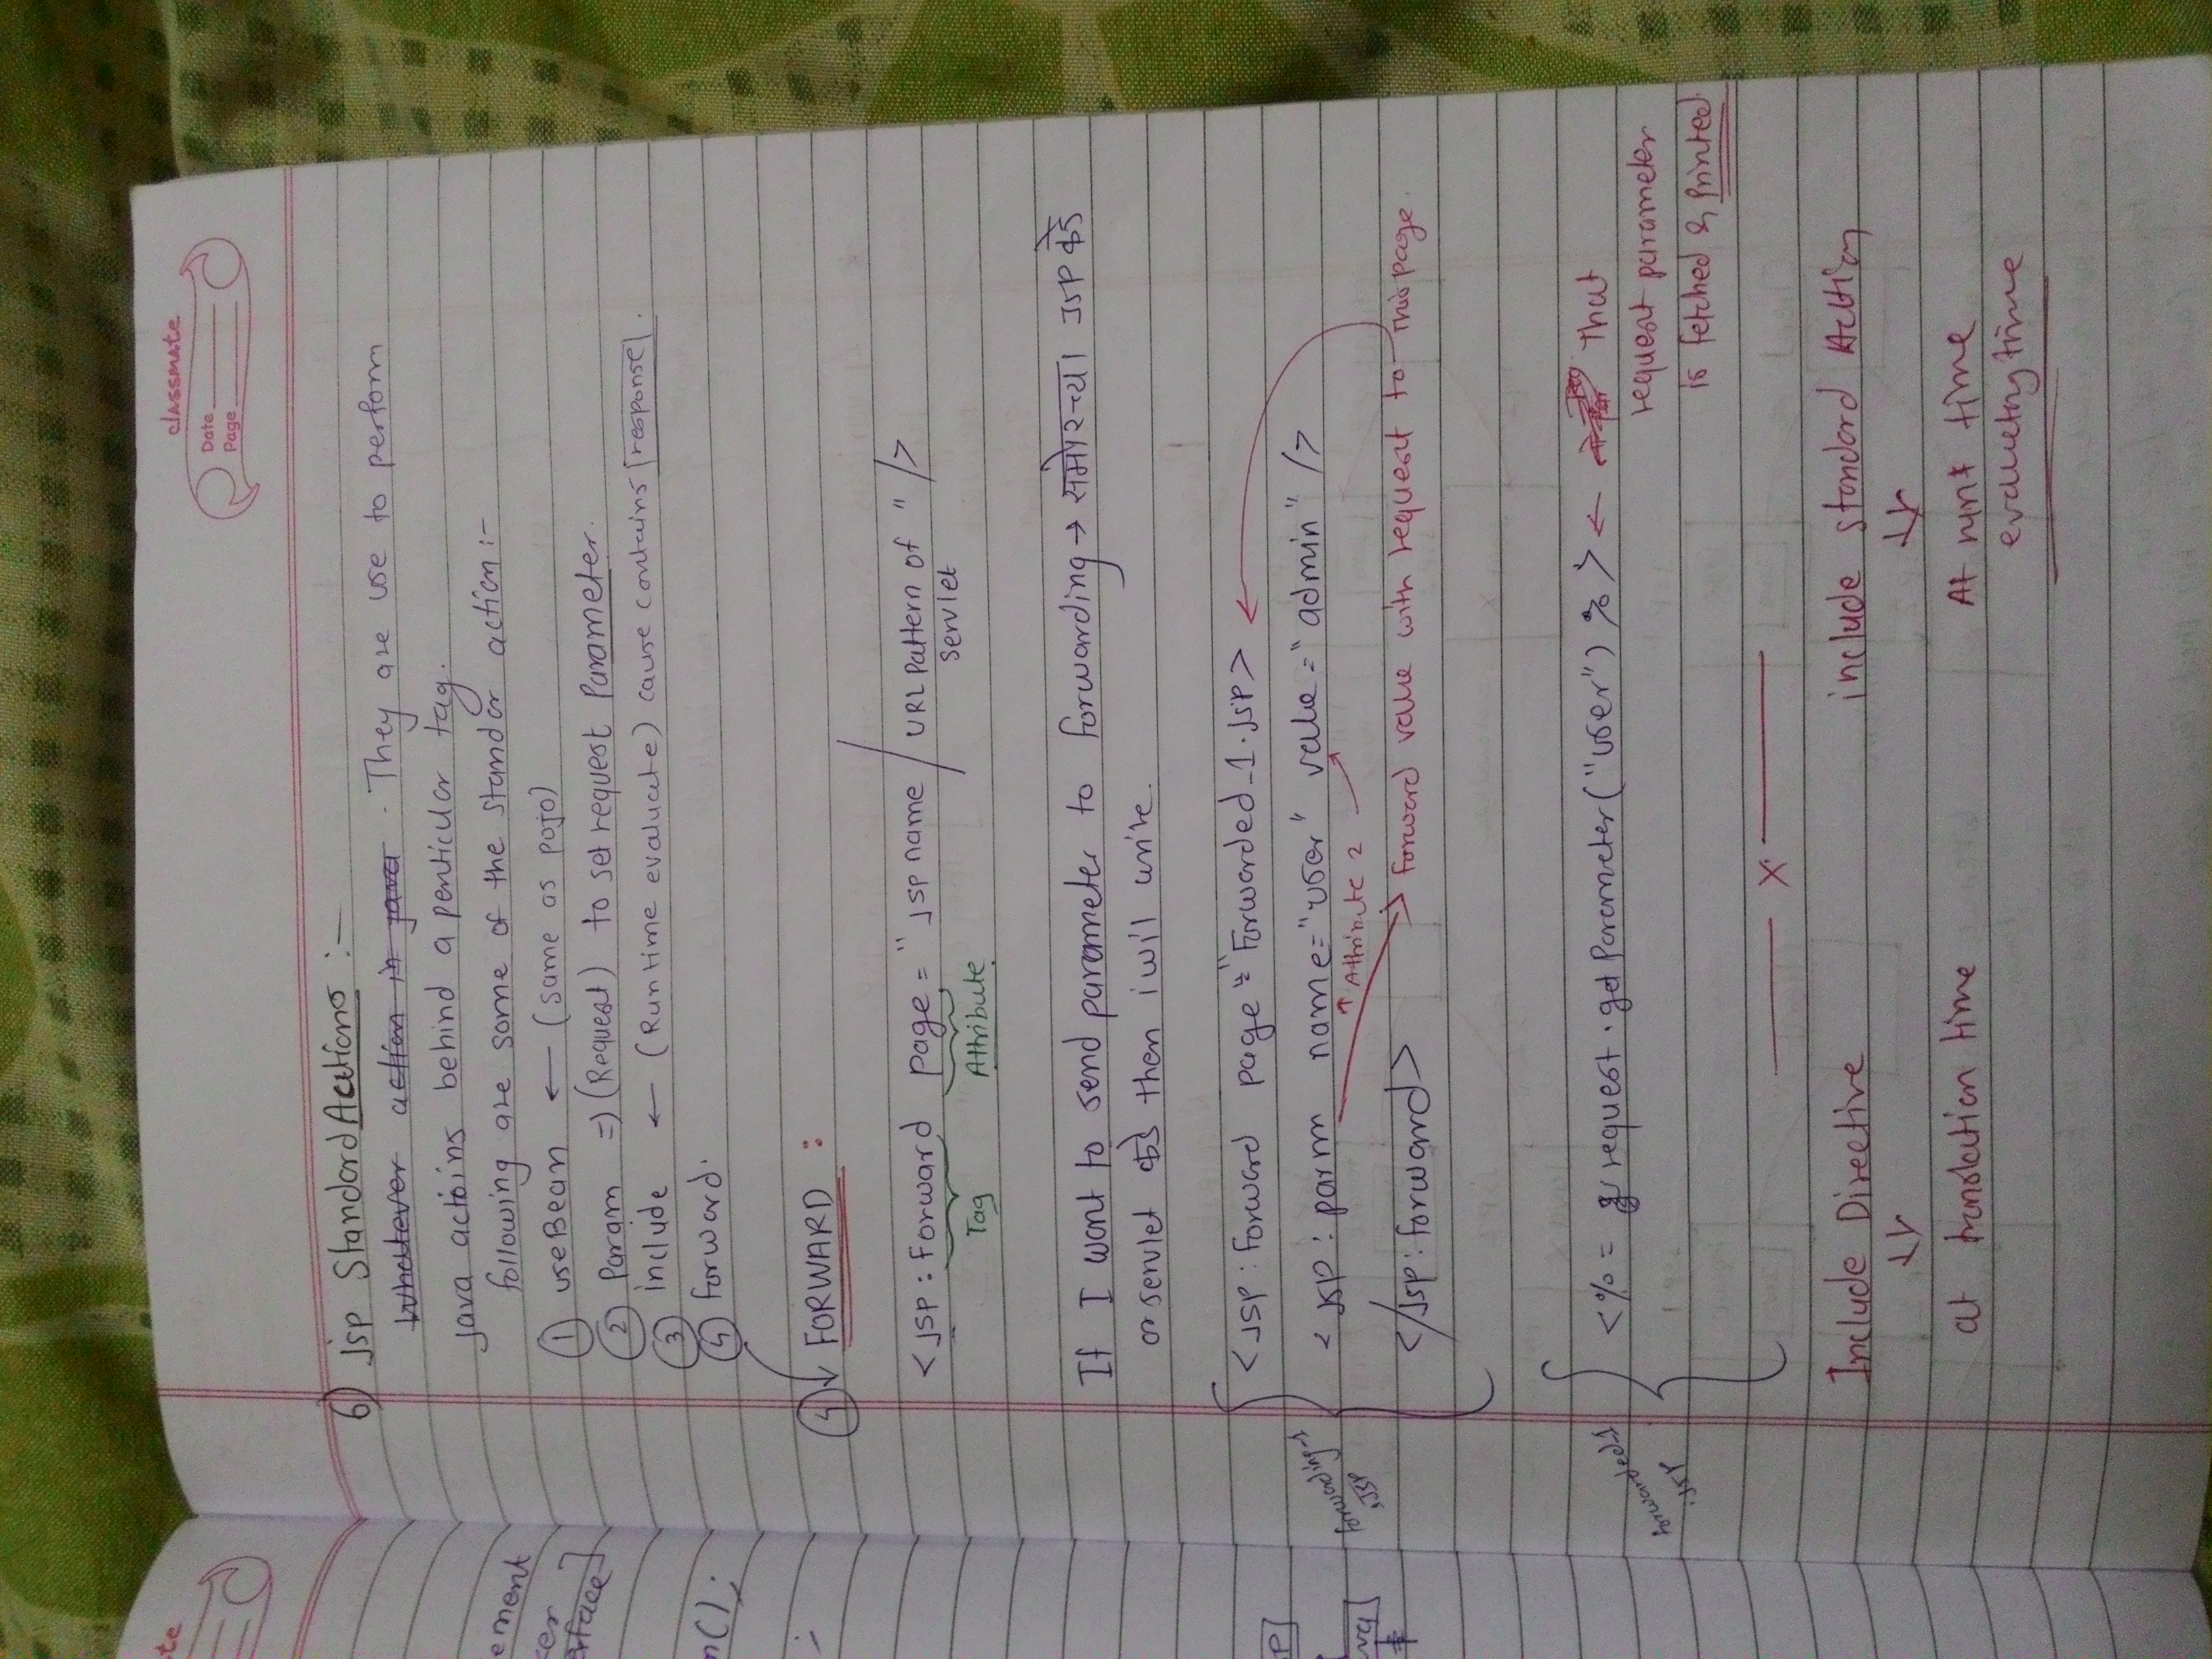 te
classmate
Date
Page
6) Jsp Standard Actions :-
Whatever action in java . They are use to perform
java actoins behind a penticular tag.
following are some of the standar action :-
① useBean ← (same as pojo)
② Param => (Request) to set request Parameter.
③ include ← (Runtime evaluate) cause contains response .
④ forword.
④ FORWARD :
<jsp : forword page = "jsp name / URL Pattern of " />
servlet
Tag Attribute
If I want to send parameter to forwarding → समोरच्या JSP कडे
or servlet कडे then i wil write.
forwarding-1
.JSP
<jsp : forword page = "Forworded_1.jsp>
<jsp : parm name="user" value="admin" />
↑ Attribute 2
</jsp:forward> → forword value with request to this page.
forwarded_1
.JSP
<%= request.getParameter("user") %> ← That
request parameter
is fetched & Printed
x
Include Directive include standard Action
at translation time At runt time
evaluting time
ement
cer
erface]
n();
;
P
va